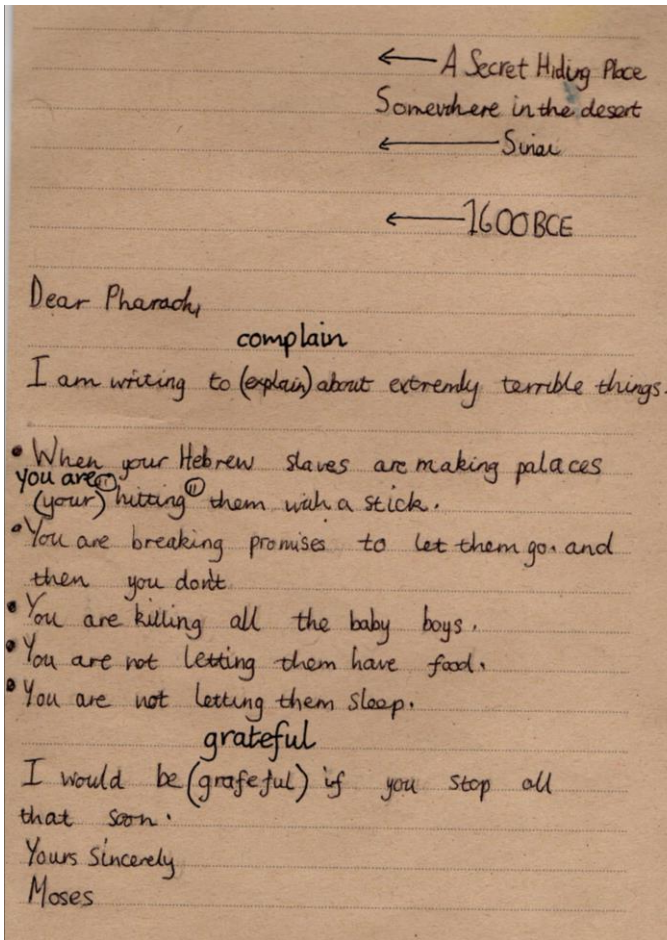 A Secret Hiding Place
Somewhere in the desert
Sinai
1600 BCE
Dear Pharaoh,
complain
I am writing to (explain) about extremly terrible things.
• When your Hebrew slaves are making palaces
you are
(your) hitting them with a stick.
• You are breaking promises to let them go. and
then you don't
• You are killing all the baby boys.
• You are not letting them have food.
• You are not letting them sleep.
grateful
I would be (grafeful) if you stop all
that soon.
Yours Sincerely
Moses